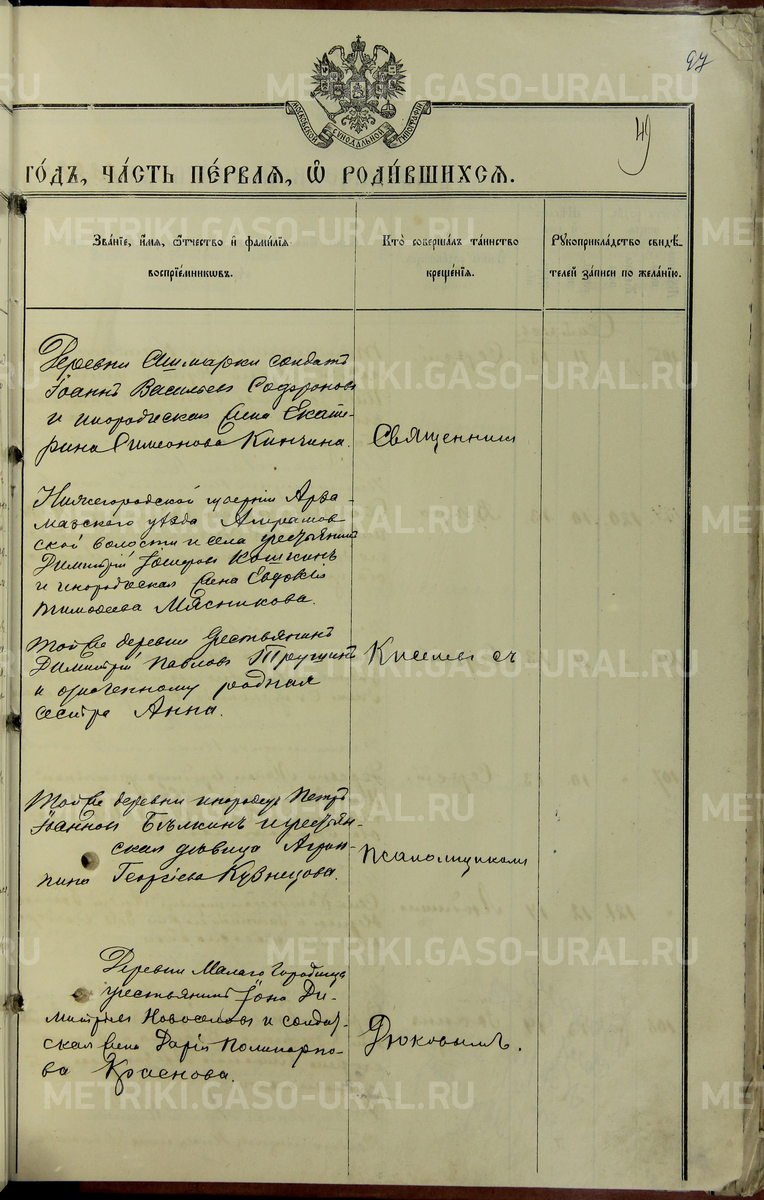 97
49
МОСКОВСКОЙ СѴНОДАЛЬНОЙ ТИПОГРАФІИ
го́дъ, ча́сть пе́рваѧ, ѡ҆ роди́вшихсѧ.
Зва́нїе, и҆́мѧ, ѻ҆́тчество и҆ фами́лїѧ
воспрїе́мниковъ.
Кто̀ соверша́лъ та́инство
креще́нїѧ.
Рꙋкоприкла́дство свидѣ́-
телей за́писи по жела́нїю.
Деревни солдатъ
Іоаннъ Васильевъ Софроновъ
и инородческая жена Екате-
рина Симеонова Кинчина.
Священникъ
Нижегородской губерніи Арза-
масскаго уѣзда
ской волости и села крестьянинъ
Димитрій Кошкинъ
и инородческая жена Евдокія
Тимофеева Мясникова.
Той же деревни крестьянинъ
Димитрій Павловъ
и родная
сестра Анна.
Киселевъ съ
Той же деревни инородецъ Петръ
Іоанновъ Бѣлкинъ и крестьян-
ская дѣвица Агрип-
пина Георгіева Кузнецова.
псаломщикомъ
Деревни Малаго Городища
крестьянинъ Іона Ди-
митріевъ Новоселовъ и солдат-
ская жена Дарія Поликарпо-
ва Краснова.
Дюковымъ.
METRIKI.GASO-URAL.RU